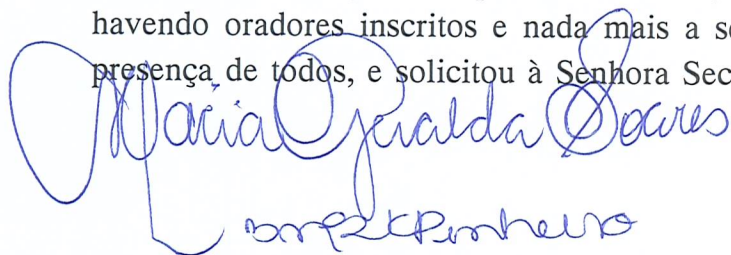 havendo oradores inscritos e nada mais a se
presença de todos, e solicitou à Senhora Sec
Maria Geralda Soares
Pinheiro